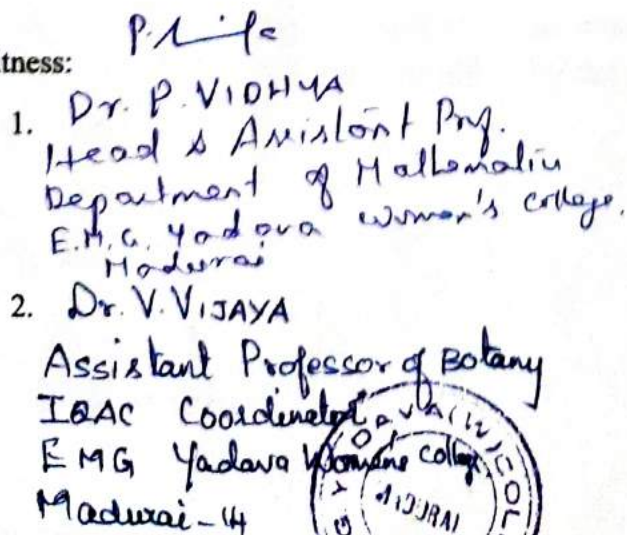 tness:
1. Dr. P. VIDHYA
Head & Assistant Prof.
Department of Mathematics
E.M.G. Yadava women's college,
Madurai
2. Dr. V. VIJAYA
Assistant Professor of Botany
IQAC Coordinator
EMG Yadava Womens College
Madurai-14